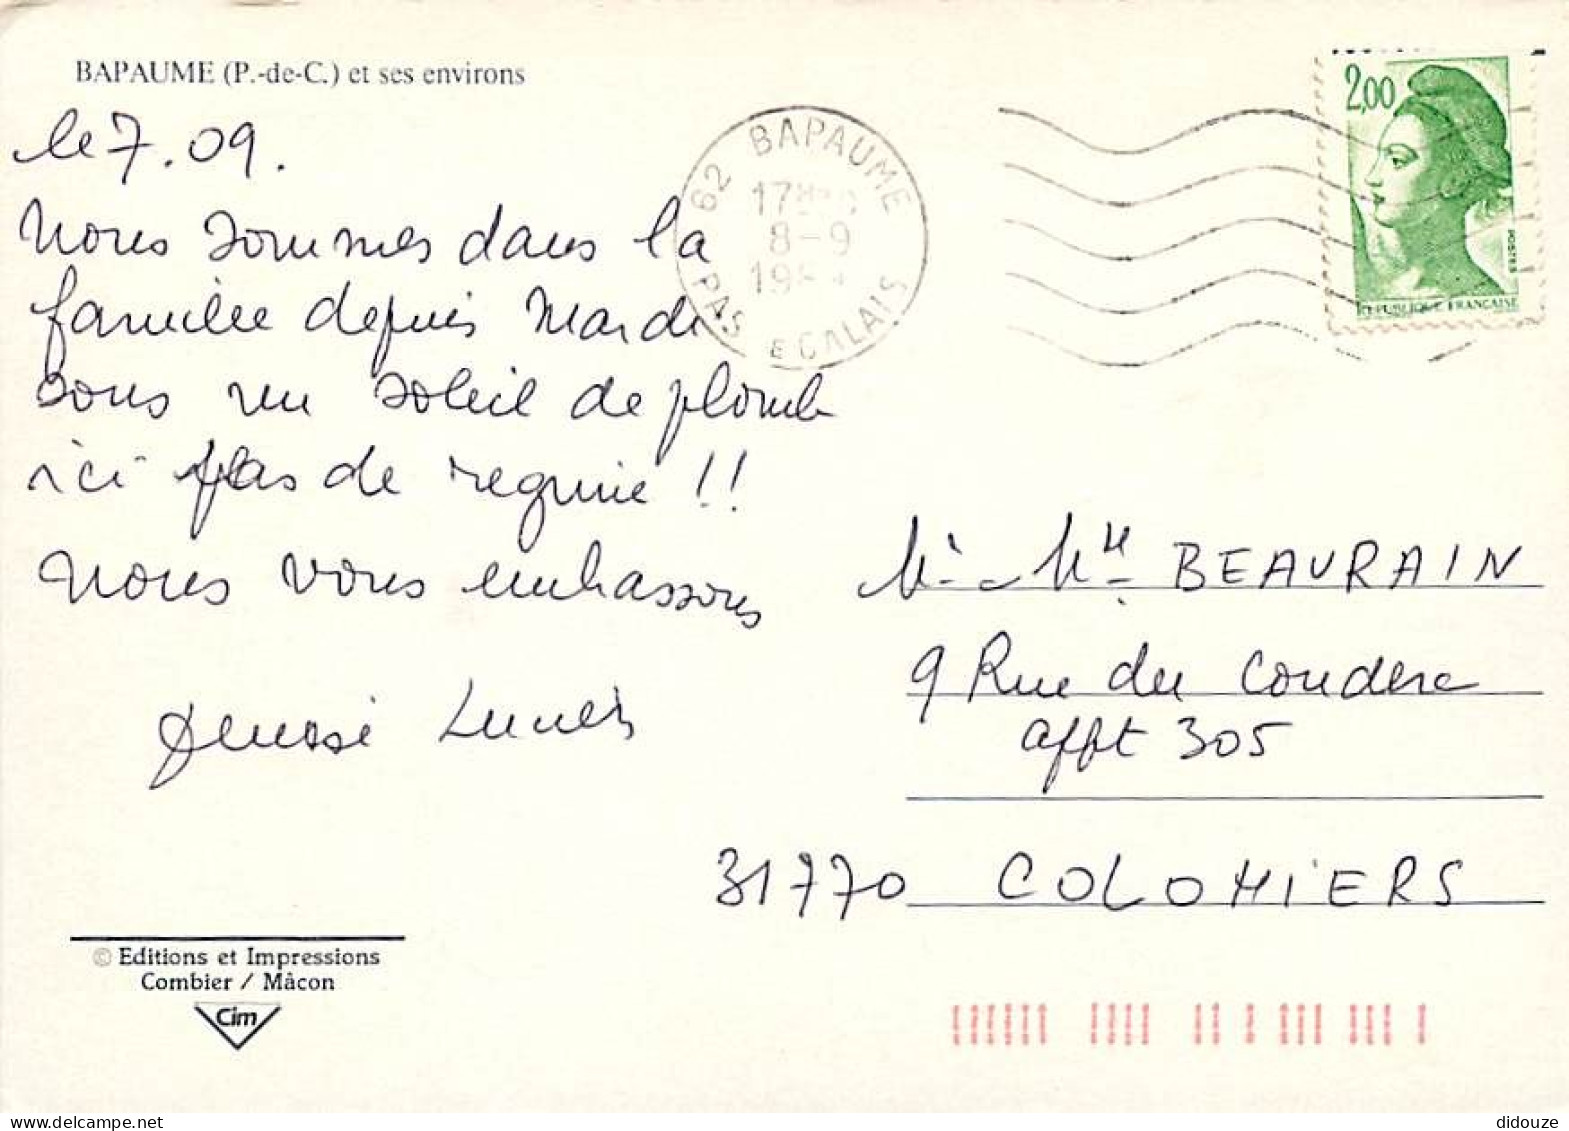 BAPAUME (P.-de-C.) et ses environs
le 7.09.
Nous sommes dans la
famille depuis Mardi
sous un soleil de plomb
ici pas de regime !!
Nous vous embrassons
62 BAPAUME
8-9
PAS CALAIS
2,00
POSTES
REPUBLIQUE FRANÇAISE
Mr. Mme BEAURAIN
9 Rue du Couderc
appt 305
31770 COLOMIERS
© Editions et Impressions
Combier / Mâcon
Cim
delcampe.net
didouze